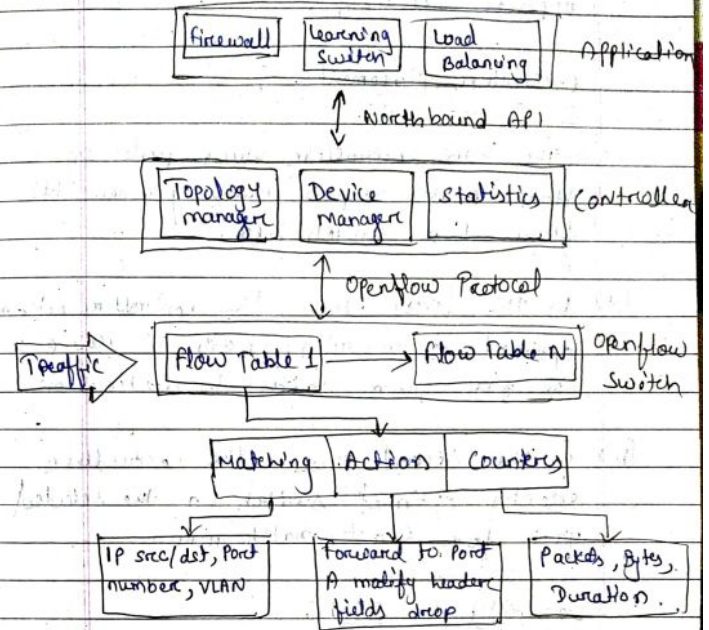 Firewall
Learning
Switch
Load
Balancing
Application
Northbound API
Topology
manager
Device
Manager
Statistics
Controller
Openflow Protocol
Traffic
Flow Table 1
Flow Table N
Openflow
Switch
Matching
Action
Counters
IP src/dst, Port
number, VLAN
Forward to Port
A modify header
fields drop
Packets, Bytes,
Duration.